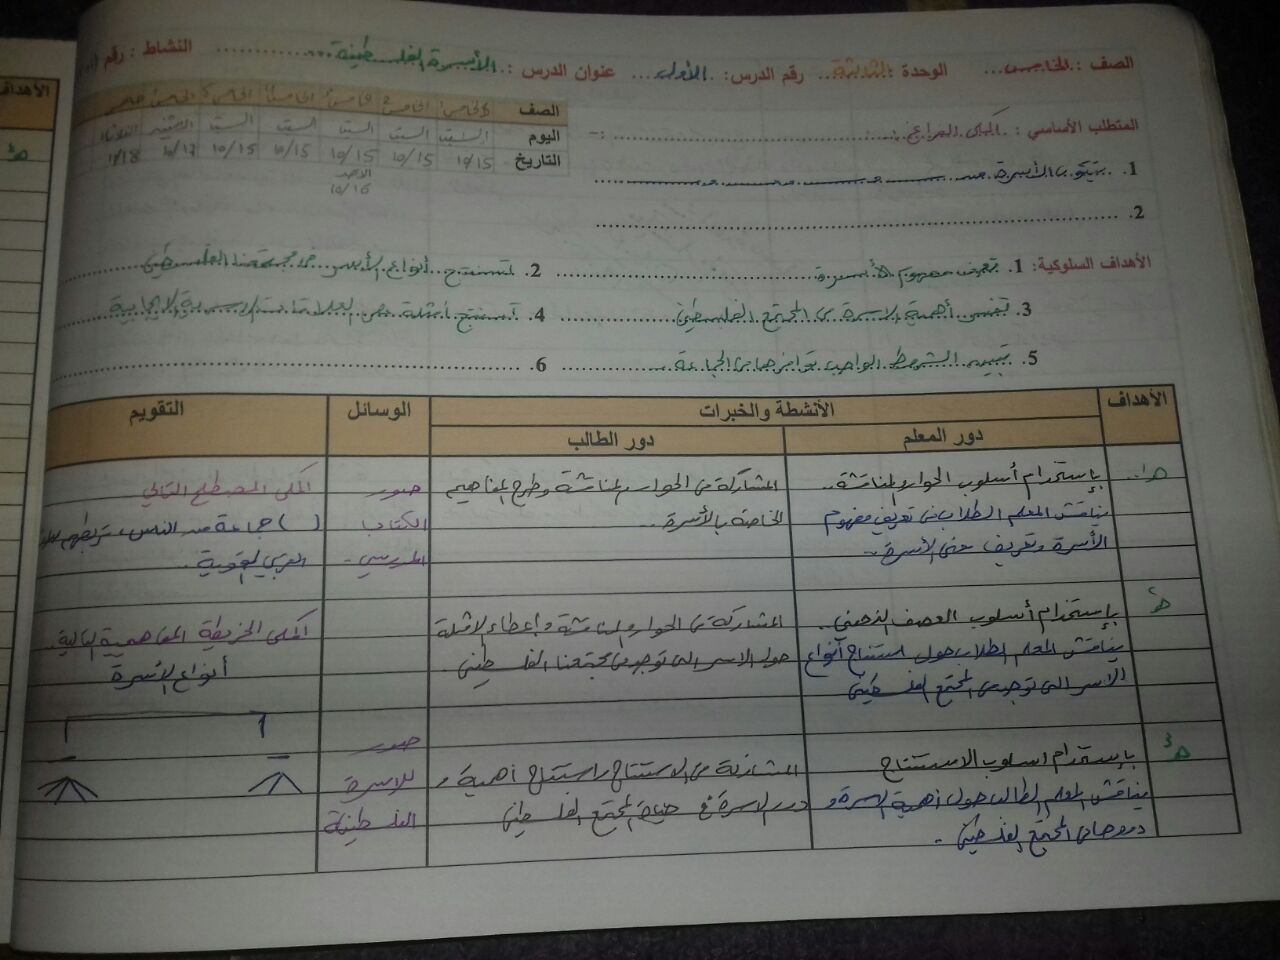 الصف : الخامس... الوحدة : الثالثة.. رقم الدرس: الأول... عنوان الدرس : الأسرة الفلسطينية... النشاط : رقم
المتطلب الأساسي : أكمل الفراغ :-
1. تتكون الأسرة من ـــــ و ـــــ و ـــــ و ـــــ
2.
الصف الخامس الخامس الخامس الخامس الخامس
اليوم السبت السبت السبت السبت السبت الاثنين الثلاثاء
التاريخ 10/15 10/15 10/15 10/15 10/15 10/17 10/18
الأحد
10/16
الأهداف السلوكية: 1. تعرف مفهوم الأسرة 2. تستنتج أنواع الأسر في مجتمعنا الفلسطيني
3. تفسر أهمية الأسرة في المجتمع الفلسطيني 4. تستنتج أمثلة على العلاقات الأسرية الإيجابية
5. تبين الشروط الواجب توافرها في الجماعة 6.
الأهداف الأنشطة والخبرات الوسائل التقويم
دور المعلم دور الطالب
هـ1 بإستخدام أسلوب الحوار والمناقشة.. المشاركة في الحوار والمناقشة وطرح المفاهيم صور أكمل المصطلح التالي
يناقش المعلم الطلاب في تعريف مفهوم الخاصة بالأسرة.. الكتاب ( ) جماعة من الناس، تربطهم
الأسرة وتعريف معنى الأسرة.. المدرسي - القوية.
هـ2 بإستخدام أسلوب العصف الذهني.. المشاركة في الحوار والمناقشة وإعطاء الأمثلة أكمل الخريطة المفاهيمية التالية.
يناقش المعلم الطلاب حول استنتاج أنواع حول الأسر التي توجد في مجتمعنا الفلسطيني. أنواع الأسرة
الأسر التي توجد في المجتمع الفلسطيني
هـ3 بإستخدام أسلوب الاستنتاج المشاركة في الاستنتاج واستنتاج أهمية و صور
يناقش المعلم الطالب حول أهمية الأسرة و دور الأسرة في حياة المجتمع الفلسطيني للأسرة
دورها في المجتمع الفلسطيني. الفلسطينية
الأهداف
هـ3